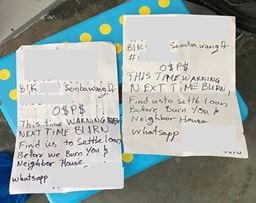 Blk Sembawang
O$P$
This time WARNING
NEXT TIME BURN
Find us to Settle loan
Before we Burn You &
Neighbor House
Whatsapp
Blk Sembawang
#
O$P$
THIS TIME WARNING
NEXT TIME BURN,
Find us to settle loan,
Before Burn You &
Neighbor House
Whatsapp